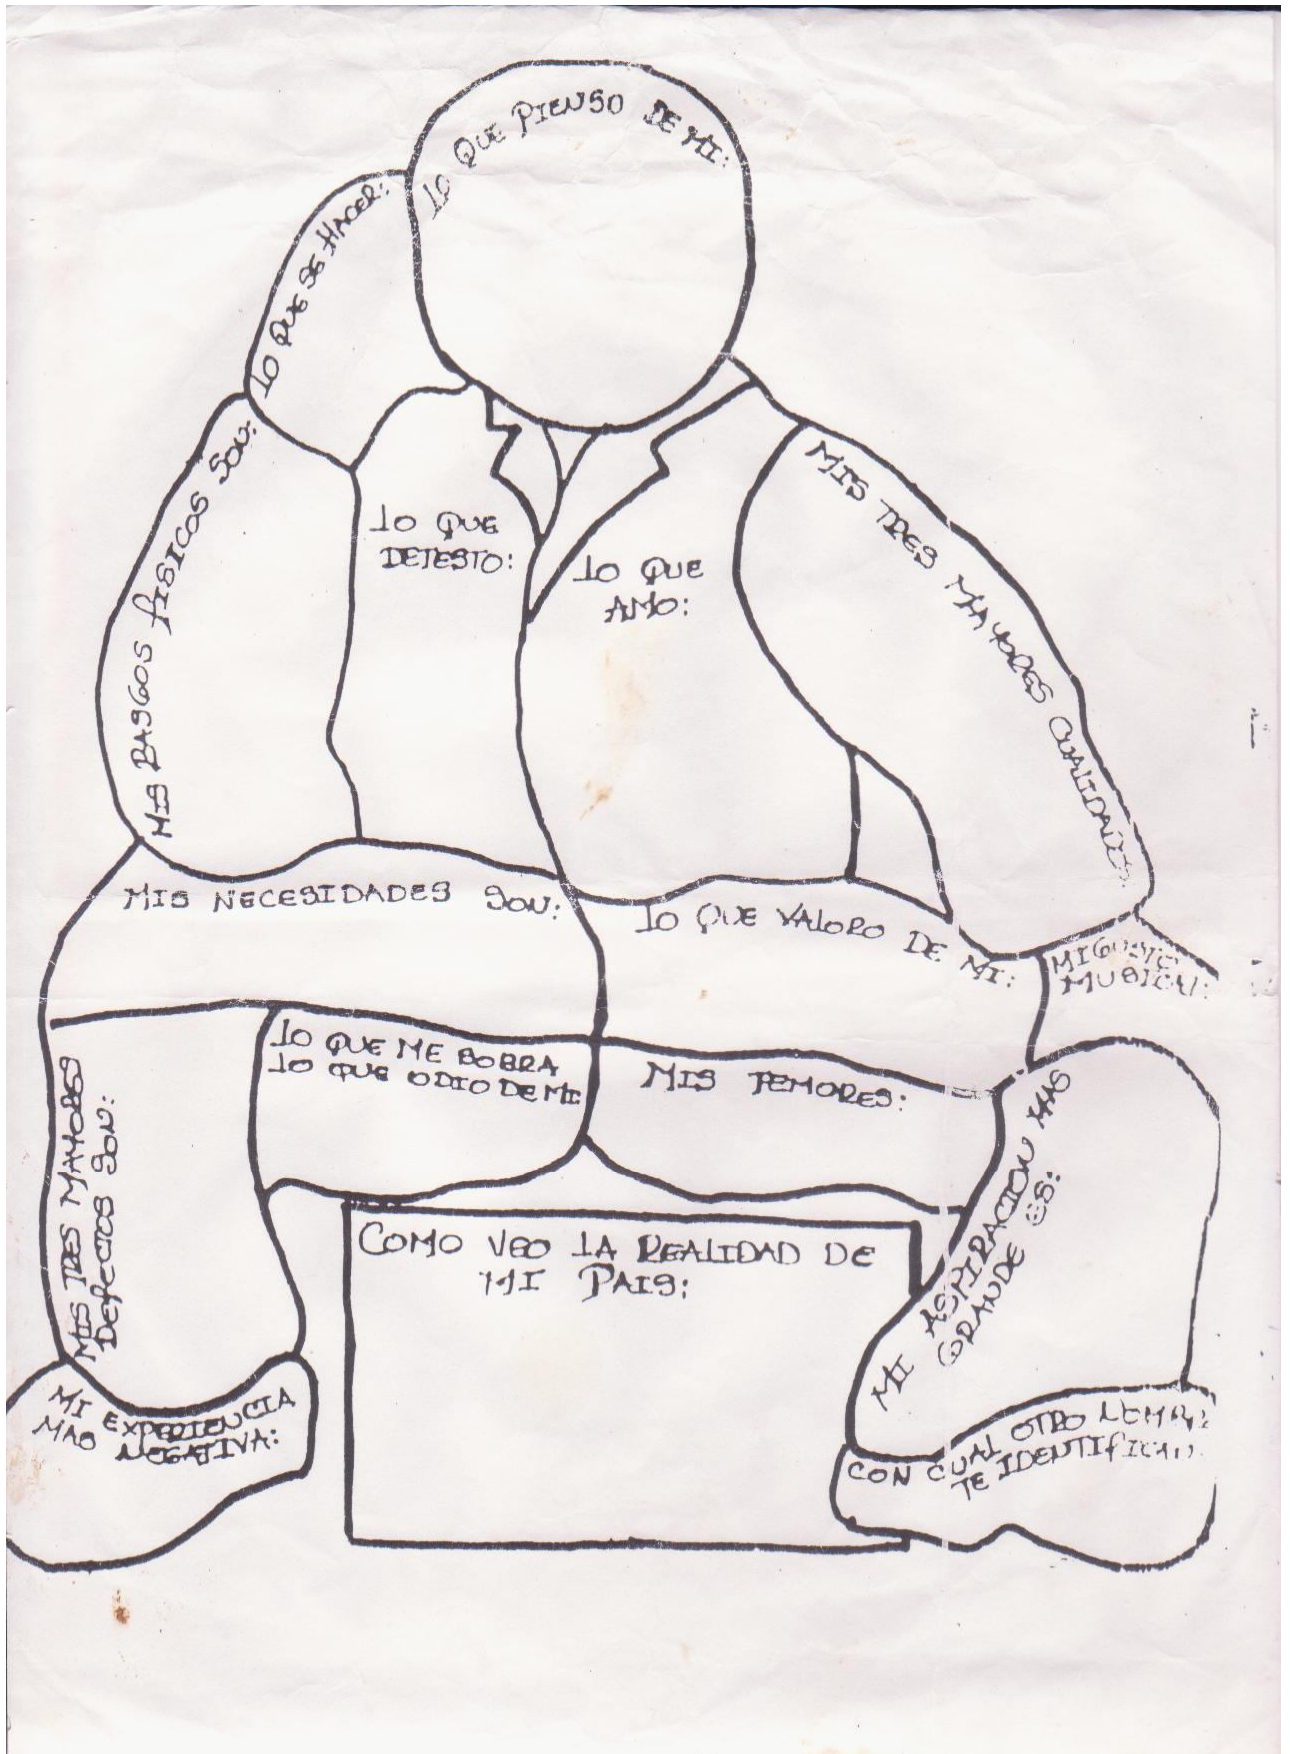 LO QUE PIENSO DE MI:
LO QUE SE HACER:
MIS RASGOS FISICOS SON:
LO QUE
DETESTO:
LO QUE
AMO:
MIS TRES MAYORES CUALIDADES:
MIS NECESIDADES SON:
LO QUE VALORO DE MI:
MI GUSTO
MUSICAL:
LO QUE ME SOBRA
LO QUE ODIO DE MI
MIS TEMORES:
MIS TRES MAYORES
DEFECTOS SON:
MI ASPIRACION MAS
GRANDE ES:
COMO VEO LA REALIDAD DE
MI PAIS:
MI EXPERIENCIA
MAS NEGATIVA:
CON CUAL OTRO
TE